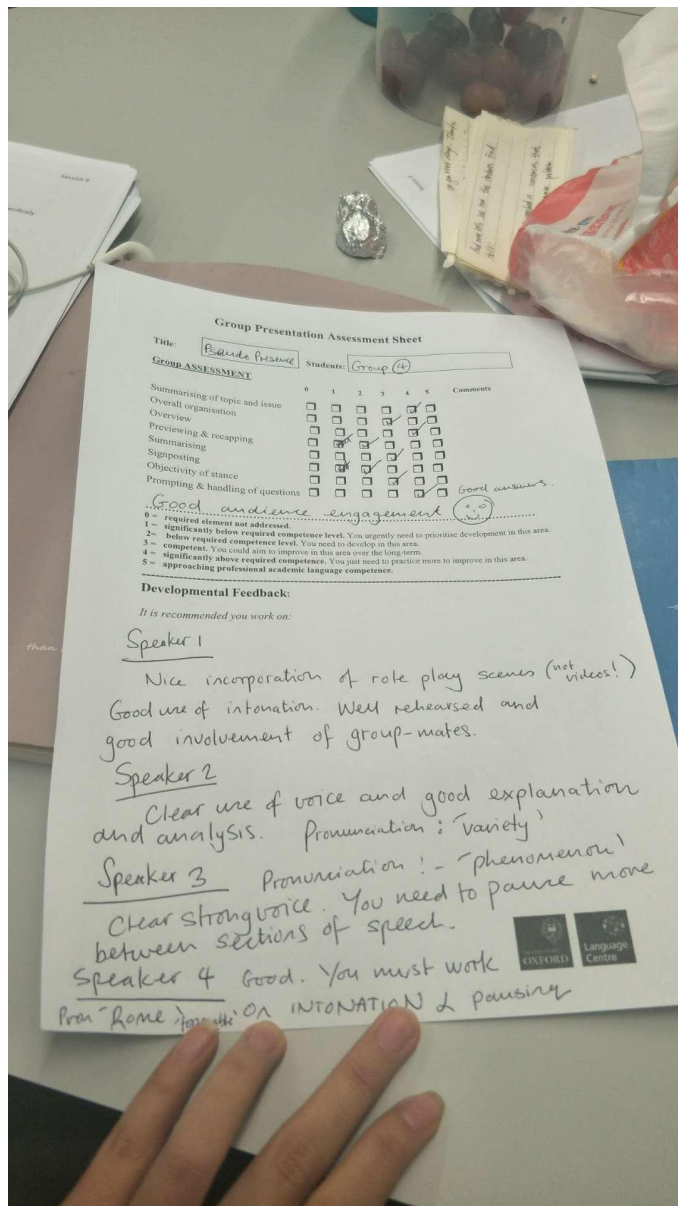 Session 9
Group Presentation Assessment Sheet
Title: Pseudo Presence Students: Group 4
Group ASSESSMENT
0 1 2 3 4 5 Comments
Summarising of topic and issue
Overall organisation
Overview
Previewing & recapping
Summarising
Signposting
Objectivity of stance
Prompting & handling of questions Good answers.
Good audience engagement
0 = required element not addressed.
1 = significantly below required competence level. You urgently need to prioritise development in this area.
2= below required competence level. You need to develop in this area.
3 = competent. You could aim to improve in this area over the long-term.
4 = significantly above required competence. You just need to practice more to improve in this area.
5 = approaching professional academic language competence.
Developmental Feedback:
It is recommended you work on:
than
Speaker 1
Nice incorporation of role play scenes (not videos!)
Good use of intonation. Well rehearsed and
good involvement of group-mates.
Speaker 2
Clear use of voice and good explanation
and analysis. Pronunciation : 'variety'
Speaker 3 Pronunciation ! - 'phenomenon'
Clear strong voice. You need to pause more
between sections of speech.
Speaker 4 Good. You must work
Pron 'Rome' ON INTONATION & pausing
OXFORD
Language
Centre